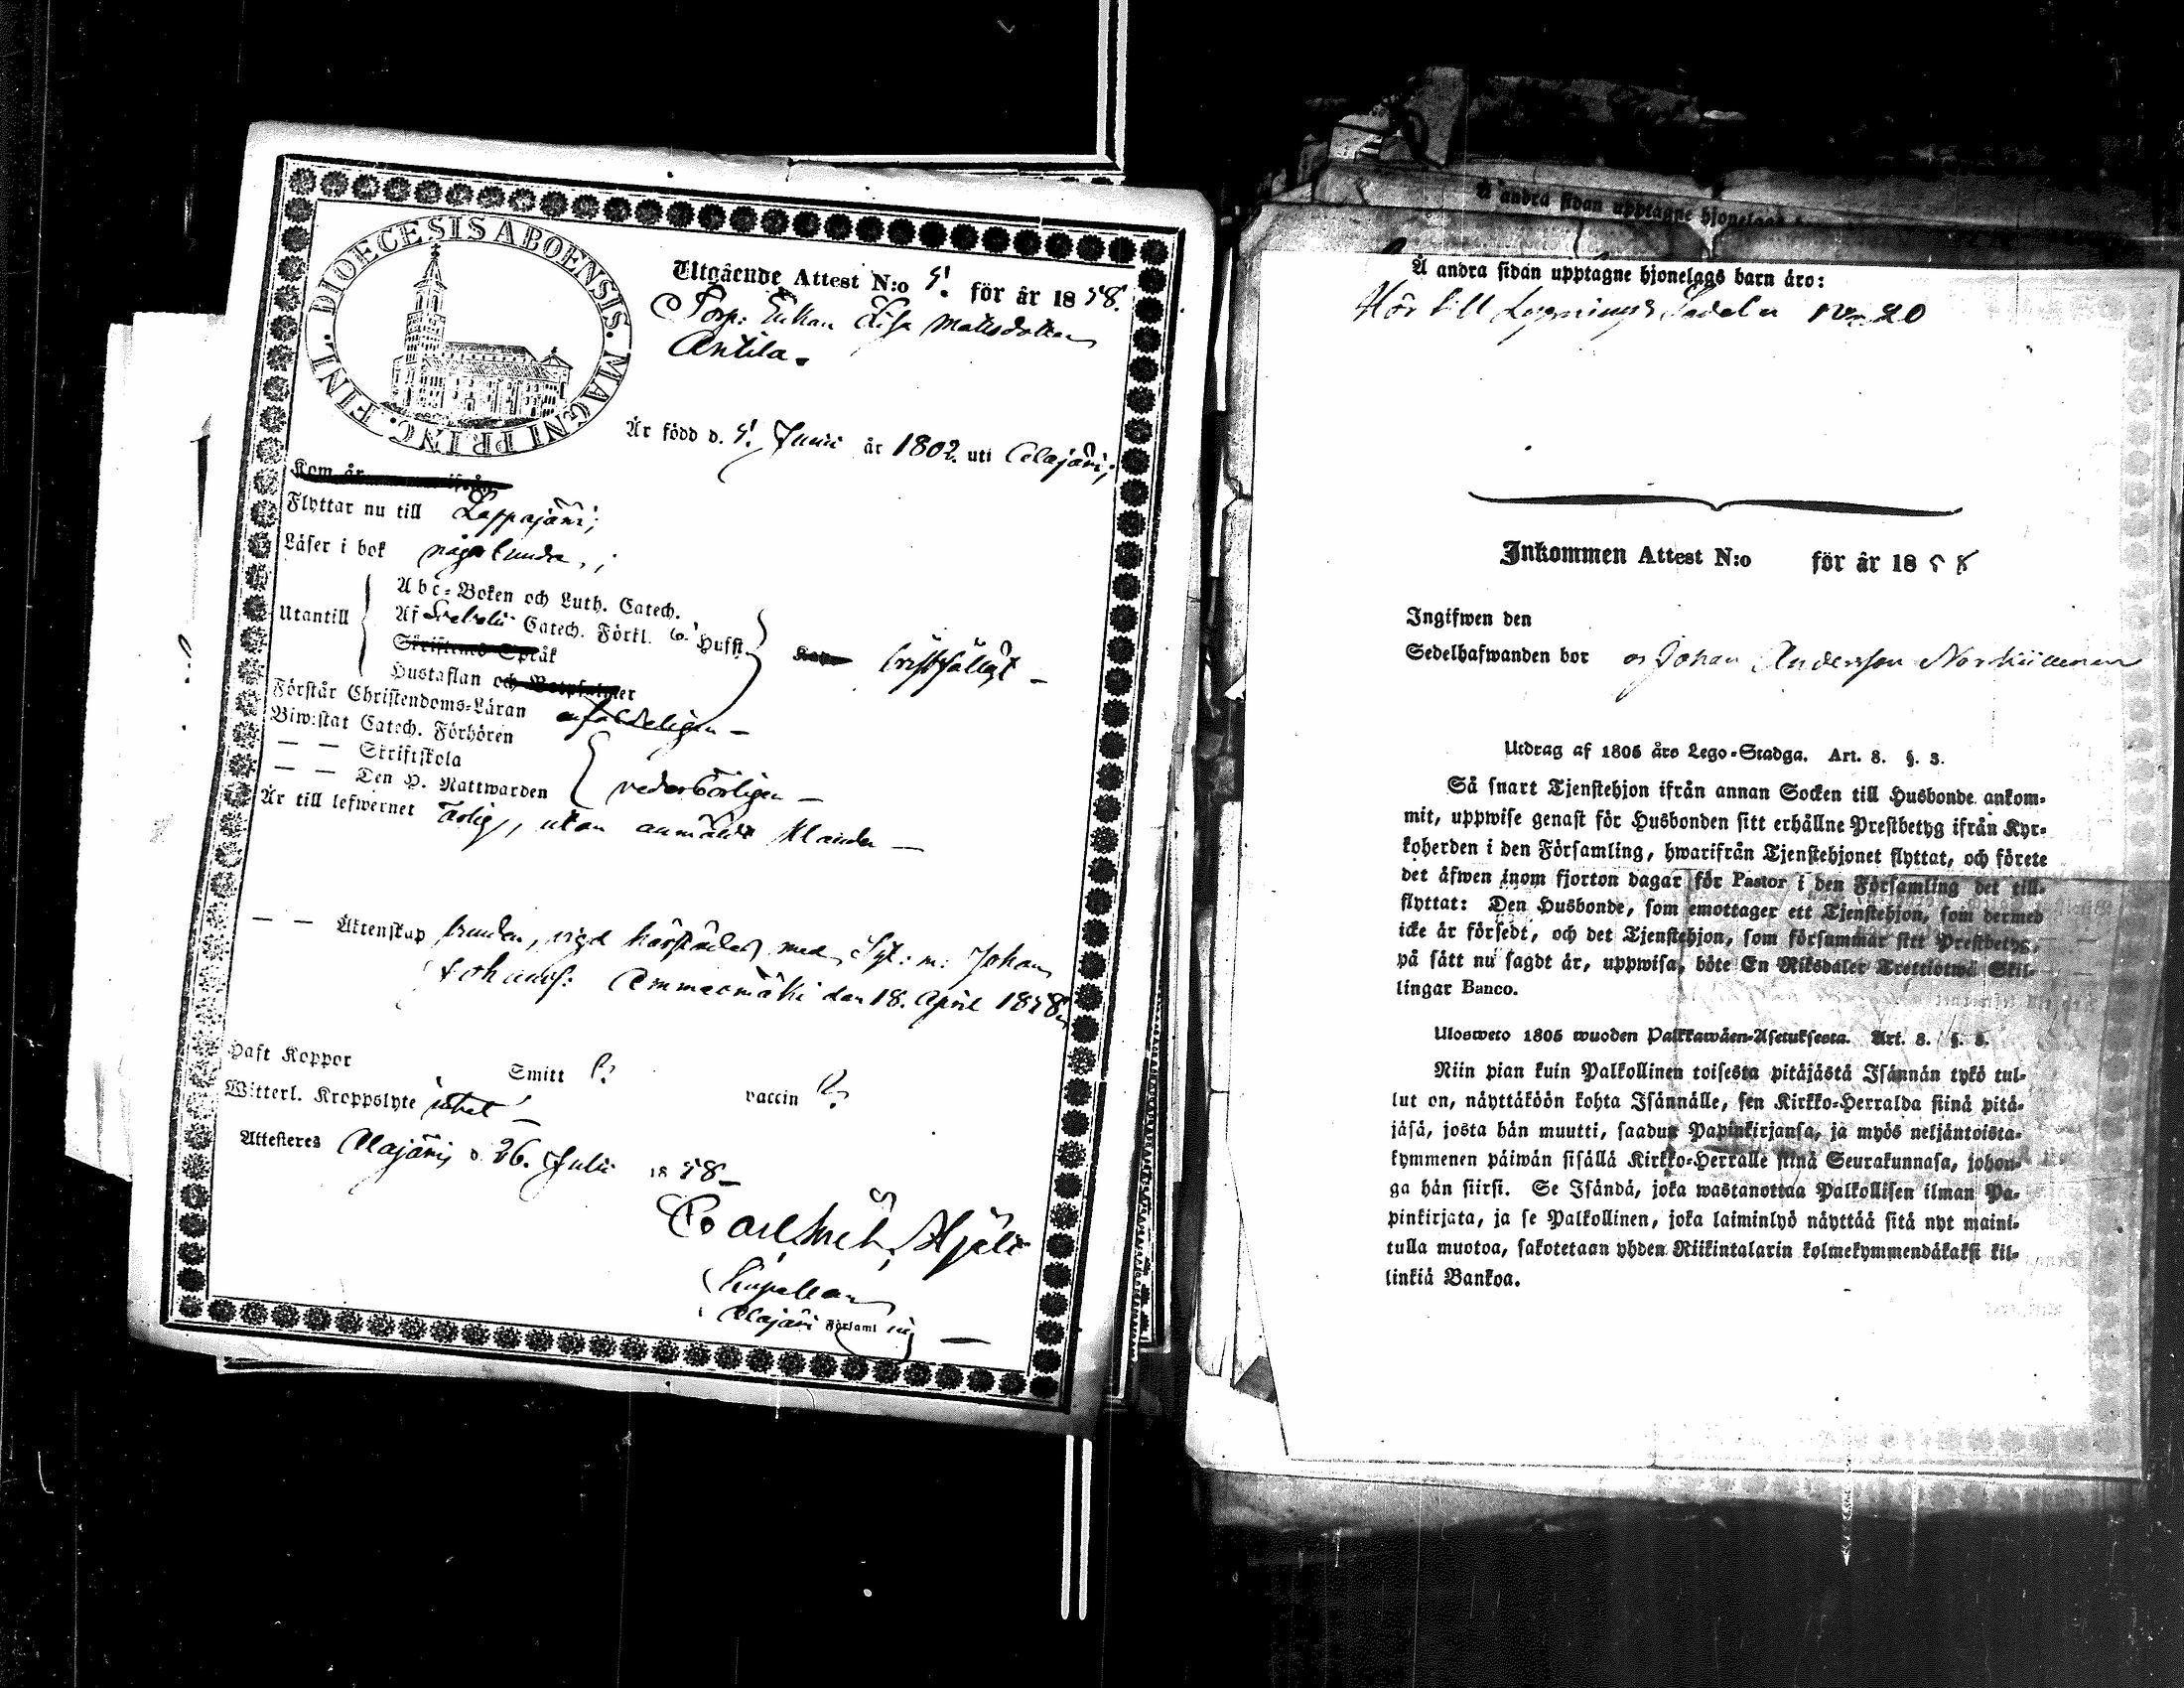 DIOECESIS ABOENSIS. MAGNI PRINC. FINL.
Utgående Attest N:o 5! för år 1858.
Torp: Enkan Lisa Mattsdotter
Antila.
Är född d. 5! Junii år 1802. uti Alajärvi;
Kom år ifrån
Flyttar nu till Lappajärvi;
Läser i bok någorlunda,;
Utantill
Abc-Boken och Luth. Catech.
Af Svebelii Catech. Förkl. 6 Hufst.
Skriftenes Språk
Hustaflan och Botpsalmer
bristfälligt —
Förstår Christendoms-Läran enfaldeligen —
Biwistat Catech. Förhören
— — Skriftskola
— — Den H. Nattwarden
vederbörligen —
Är till lefwernet ärlig, utan anmäldt klander —
— — Äktenskap bunden, vigd härstädes med Johan
Johanss: Ammesmäki den 18. April 1858
Haft Koppor Smitt ?. vaccin ?.
Witterl. Kroppslyte intet —
Attesteras Alajärvi d. 26. Julii 1858 —
Hjelt
Kapellan
Alajärvi Församling —
Å andra sidan upptagne hjonelags
Å andra sidan upptagne hjonelags barn äro:
Hör till Lysnings Sedeln No 20
Inkommen Attest N:o för år 1858
Ingifwen den
Sedelhafwanden bor Johan Andersson
Utdrag af 1805 åro Lego-Stadga. Art. 8. §. 3.
Så snart Tjenstehjon ifrån annan Socken till Husbonde ankom-
mit, uppwise genast för Husbonden sitt erhållne Prestbetyg ifrån Kyr-
koherden i den Församling, hwarifrån Tjenstehjonet flyttat, och förete
det äfwen inom fjorton dagar för Pastor i den Församling det till-
flyttat: Den Husbonde, som emottager ett Tjenstehjon, som dermed
icke är försedt, och det Tjenstehjon, som försummar sitt Prestbetyg,
på sätt nu sagdt är, uppwisa, böte En Riksdaler Trettiotwå Skil-
lingar Banco.
Ulosweto 1805 wuoden Palkkawäen-Asetuksesta. Art. 8. §. 3.
Niin pian kuin Palkollinen toisesta pitäjästä Isännän tykö tul-
lut on, näyttäköön kohta Isännälle, sen Kirkko-Herralda siinä pitä-
jäsä, josta hän muutti, saadun Papinkirjansa, ja myös neljäntoista-
kymmenen päiwän sisällä Kirkko-Herralle siinä Seurakunnasa, johon-
ga hän siirsi. Se Isändä, joka wastanottaa Palkollisen ilman Pa-
pinkirjata, ja se Palkollinen, joka laiminlyö näyttää sitä nyt maini-
tulla muotoa, sakotetaan yhden Riikintalarin kolmekymmendäkaksi kil-
linkiä Bankoa.